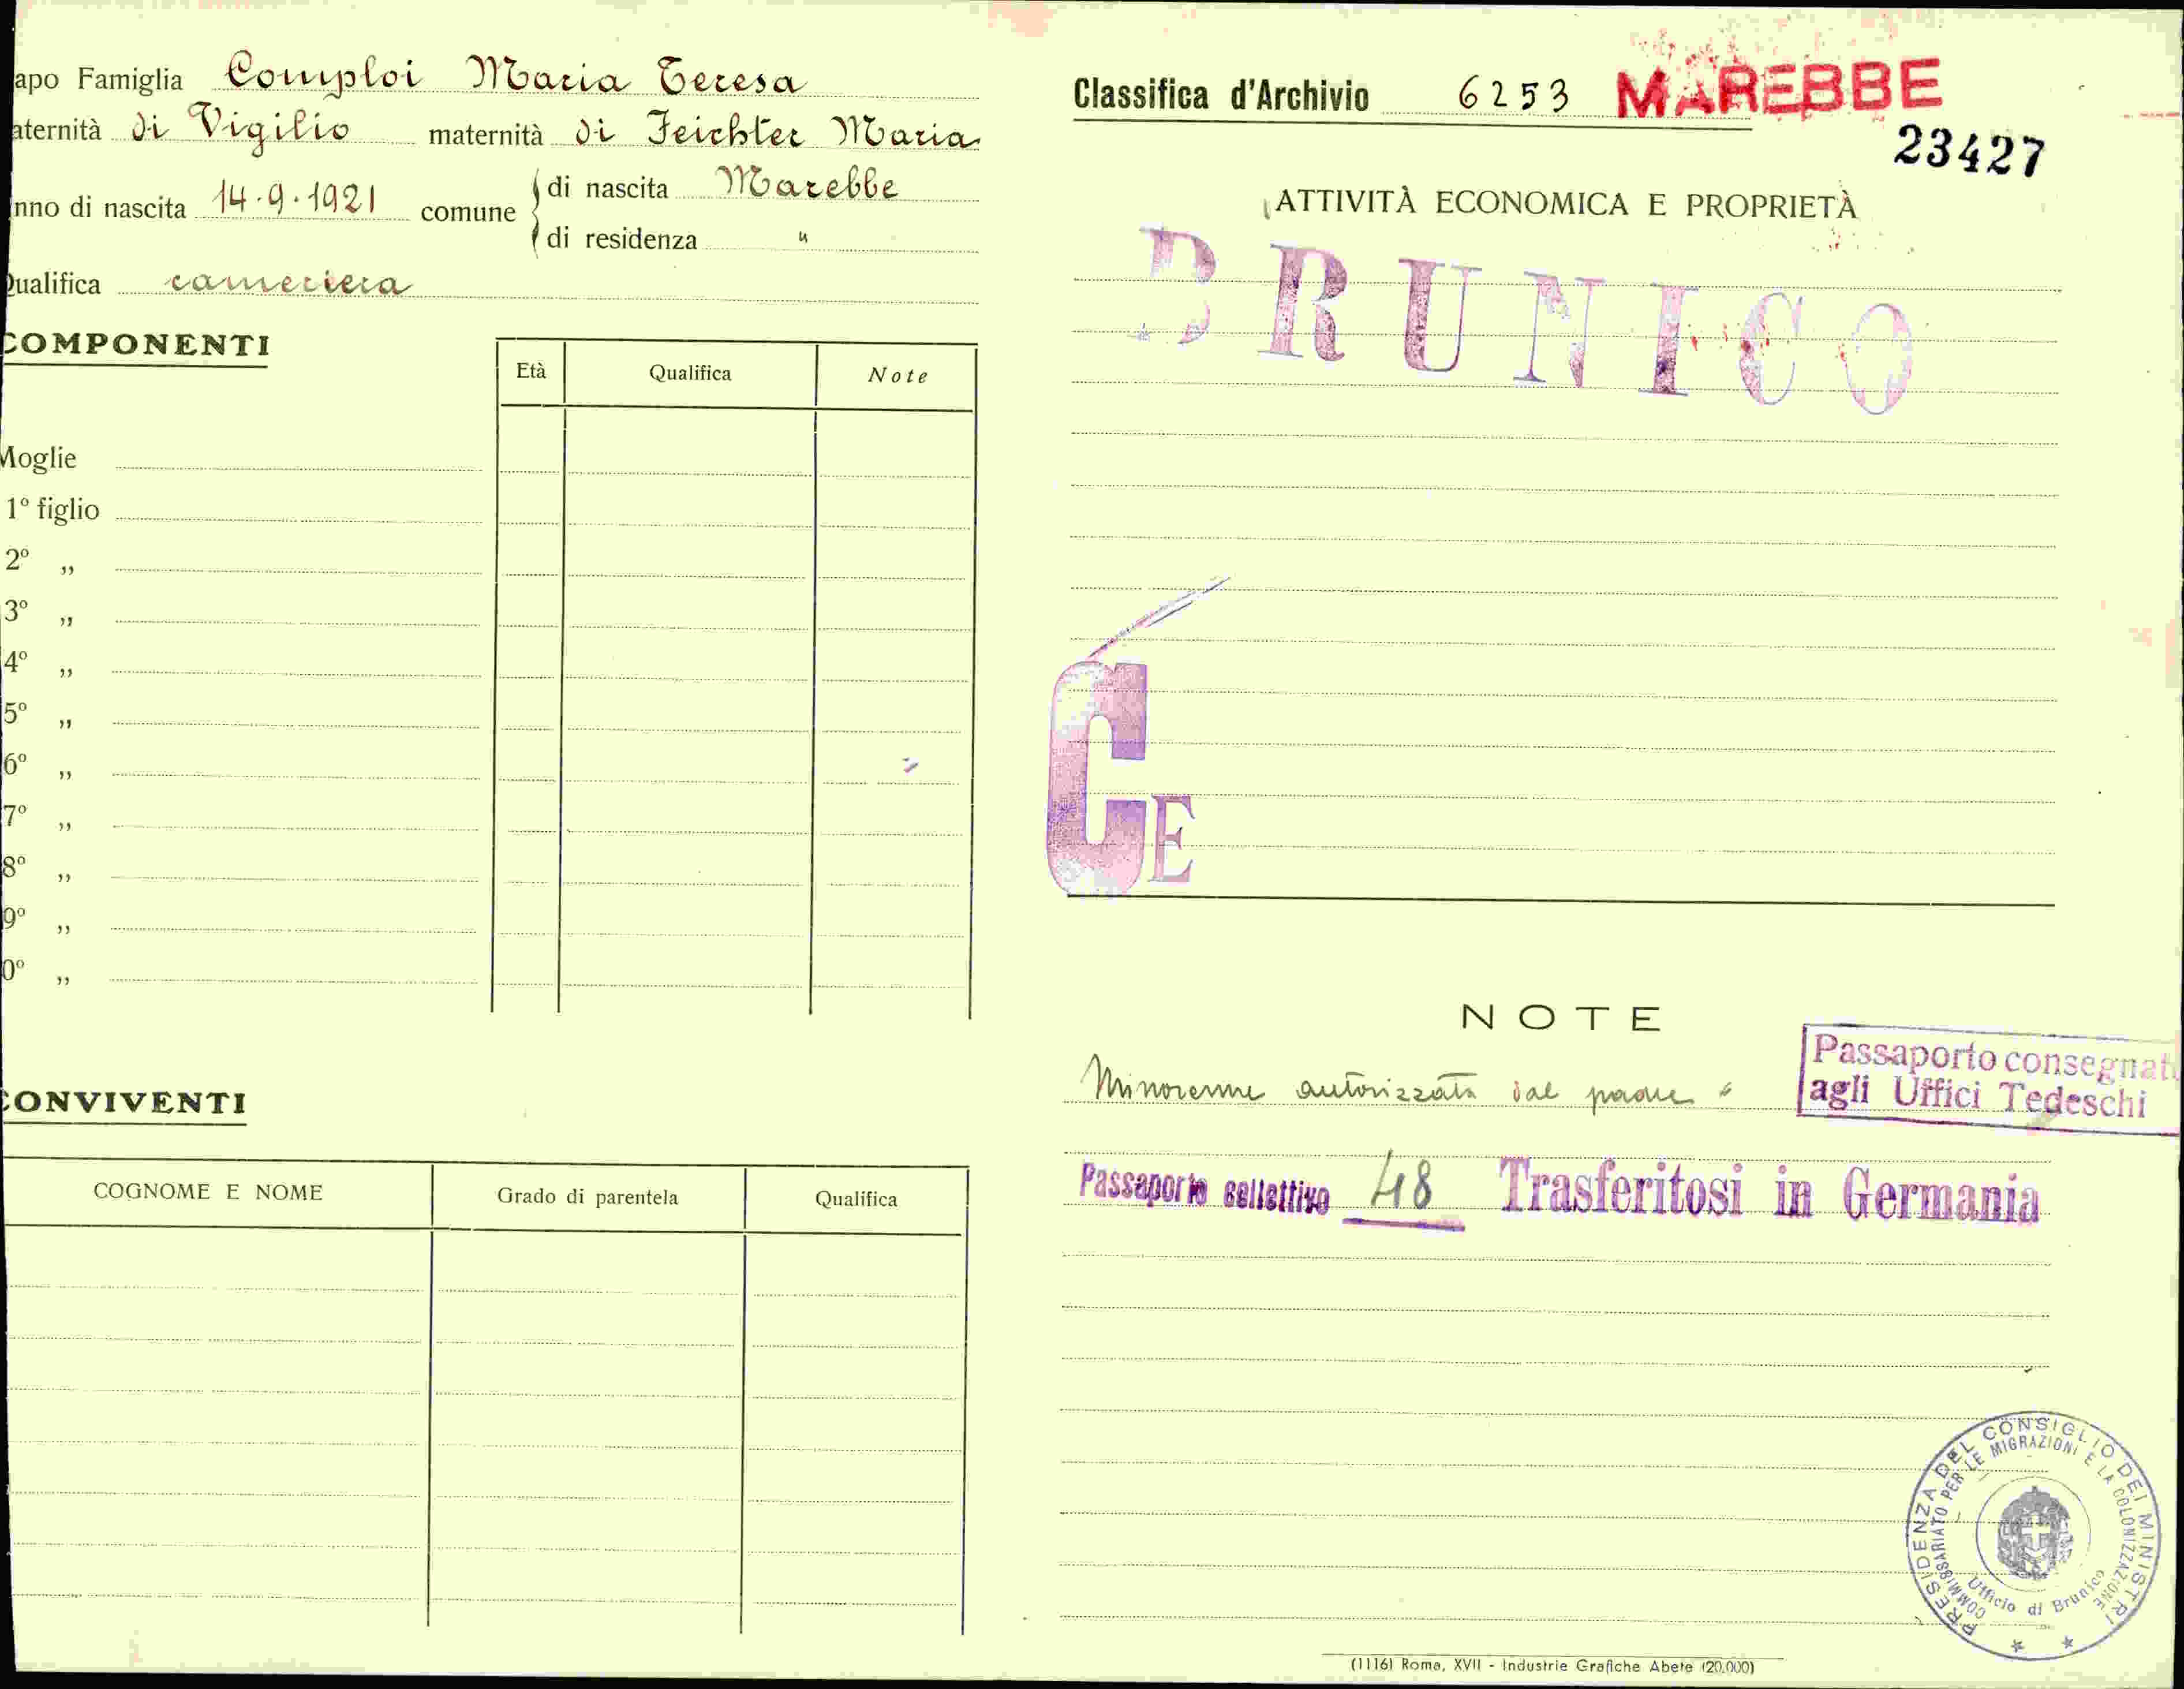 apo Famiglia Comploi Maria Teresa
aternità di Vigilio maternità di Feichter Maria
nno di nascita 14.9.1921 comune di nascita Marebbe
di residenza "
Qualifica cameriera
COMPONENTI
Età Qualifica Note
Moglie
1º figlio
2º "
3º "
4º "
5º "
6º "
7º "
8º "
9º "
0º "
CONVIVENTI
COGNOME E NOME Grado di parentela Qualifica
Classifica d'Archivio 6253 MAREBBE
23427
ATTIVITÀ ECONOMICA E PROPRIETÀ
BRUNICO
CE
NOTE
Minorenne autorizzata dal padre
Passaporto consegnat
agli Uffici Tedeschi
Passaporto collettivo 48 Trasferitosi in Germania
PRESIDENZA DEL CONSIGLIO DEI MINISTRI
COMMISSARIATO PER LE MIGRAZIONI E LA COLONIZZAZIONE
Ufficio di Brunico
(1116) Roma, XVII - Industrie Grafiche Abete (20.000)